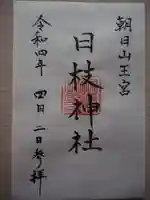 朝日山王宮
日枝神社
令和四年 四月二日参拝